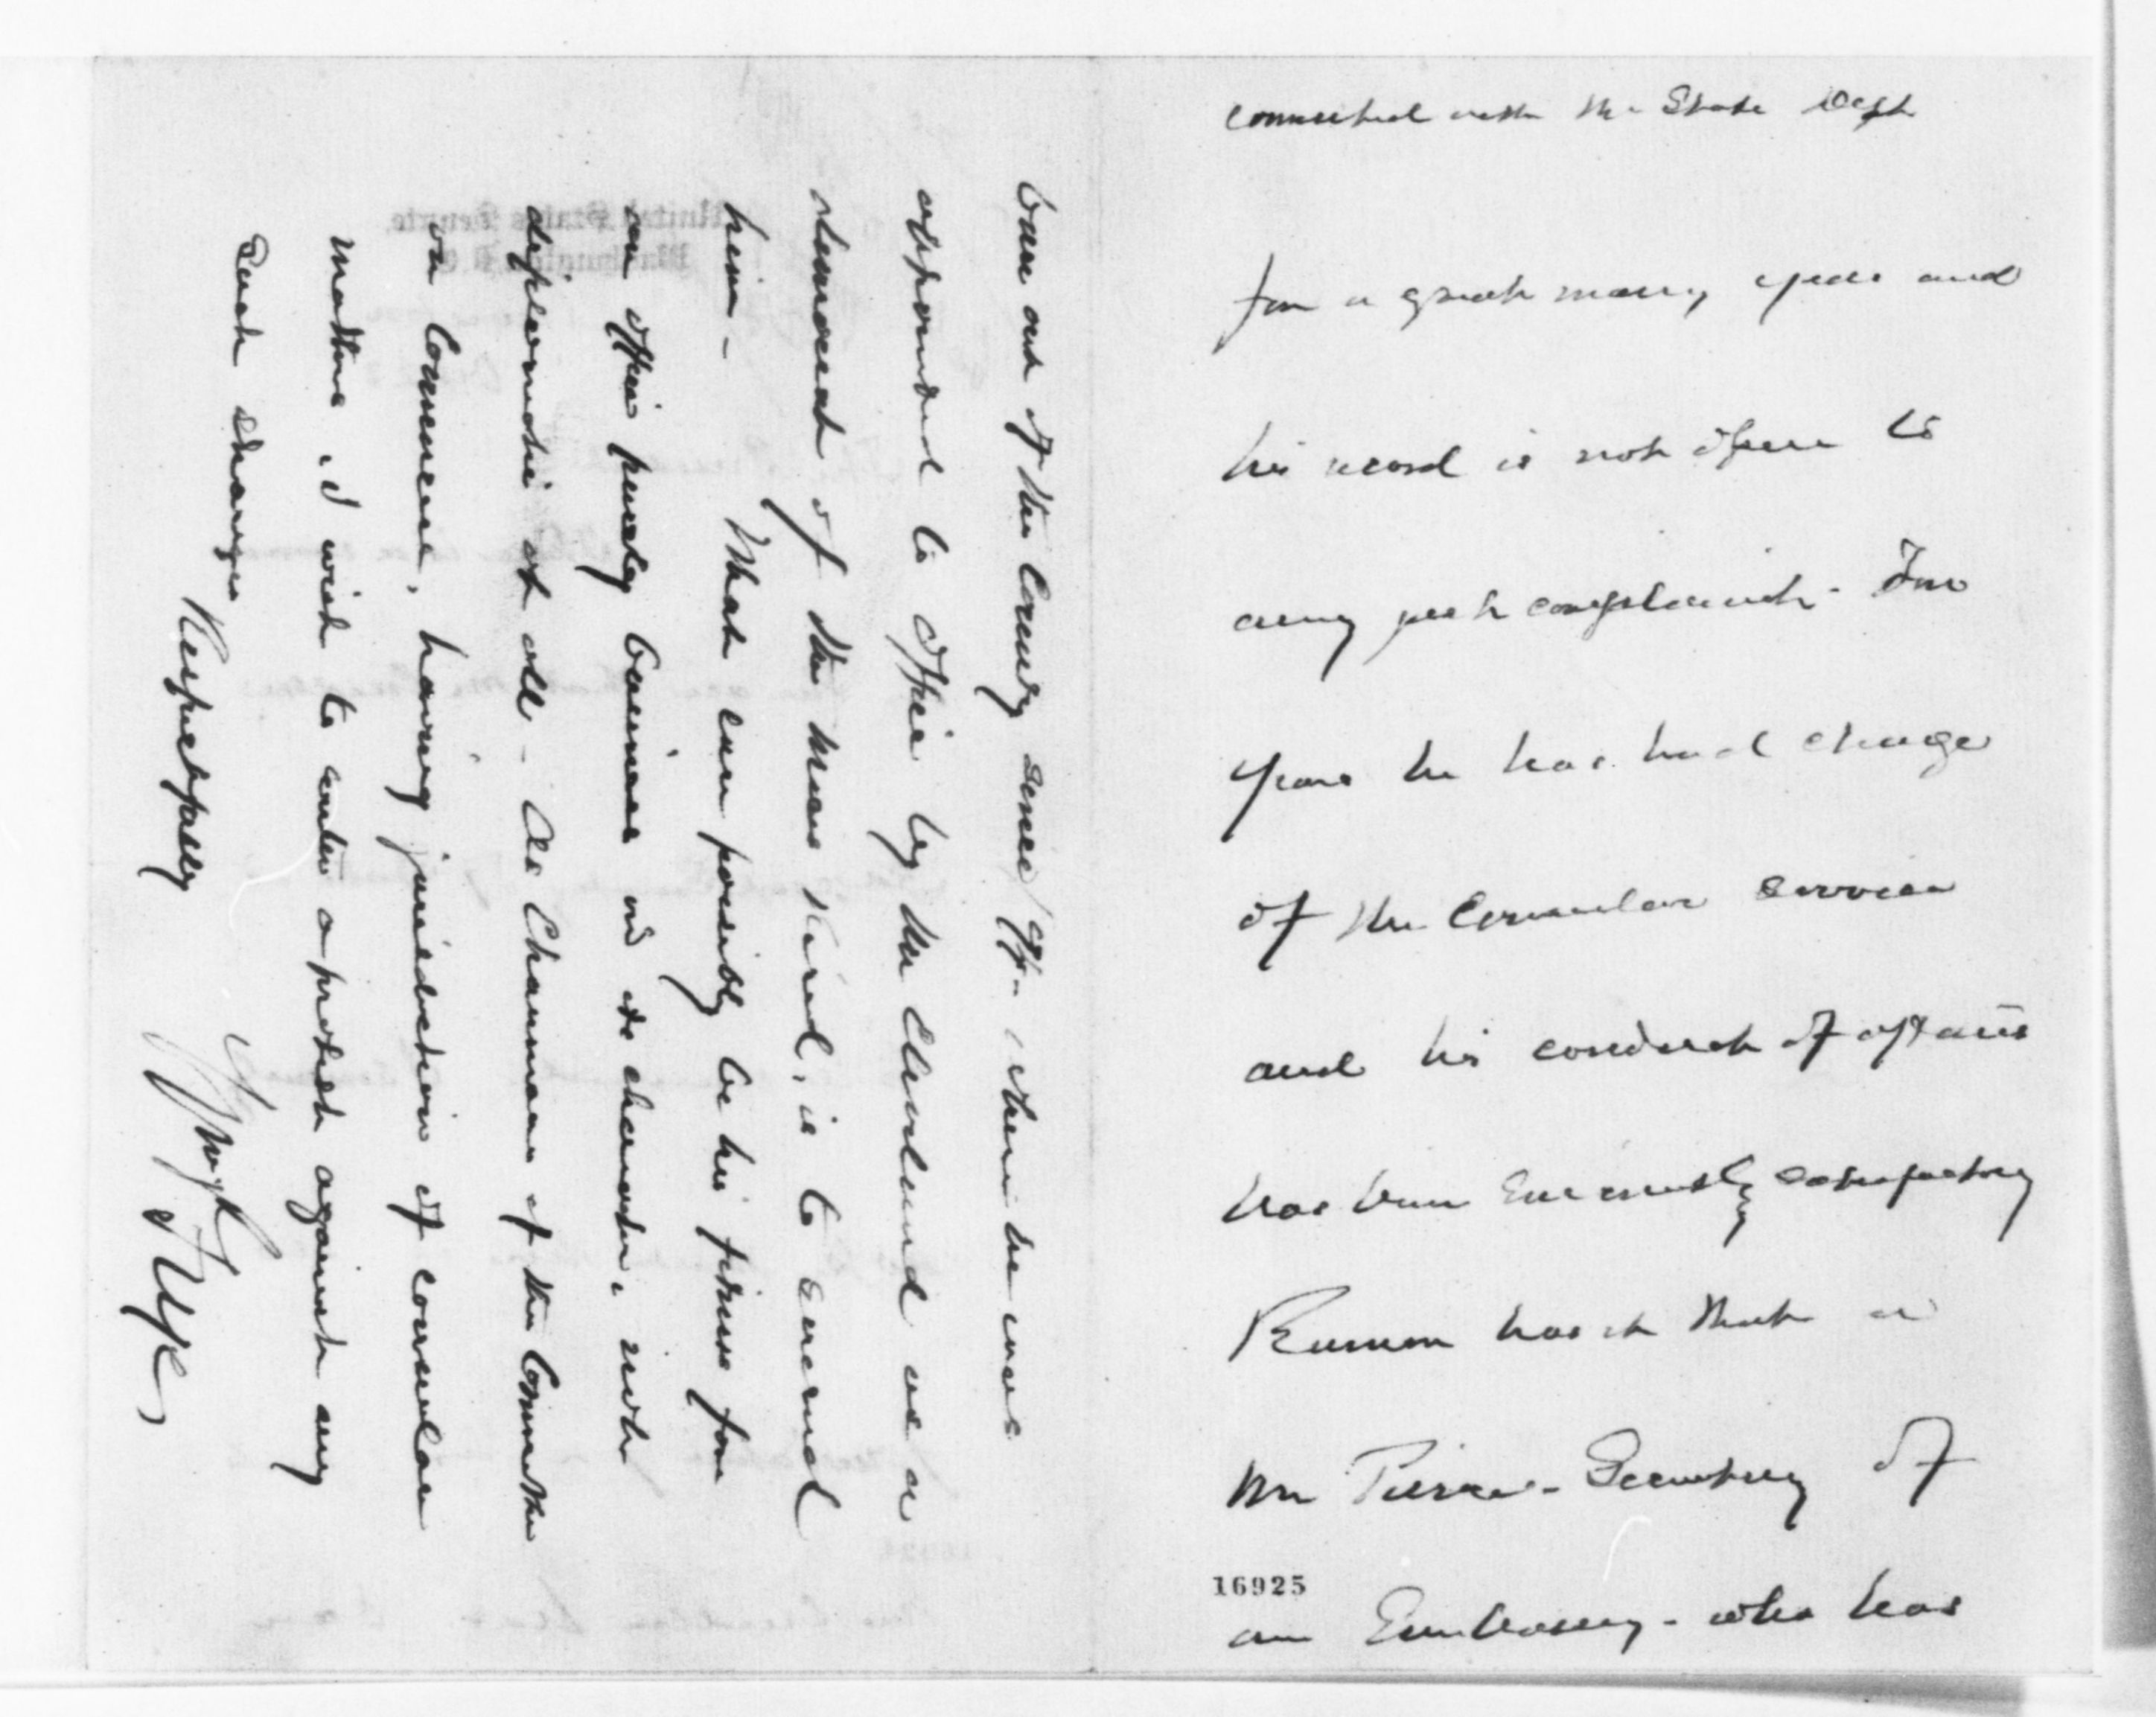 connected with the State Dept
for a great many years and
his record is not open to
any just complaint - For
years he has had charge
of the Consular Service
and his conduct of affairs
has been Eminently satisfactory
Rumor has it that a
Mr Peirce - Secretary of
16925
an Embassy - who has
been out of the Country since 94 - when he was
appointed to office by Mr Cleveland as a
of the kind, is to succeed
him - What can possibly be his fitness for
an office purely business in its character, not
diplomatic at all - As Chairman of the Committee
on Commerce, having jurisdiction of consular
matters, I wish to enter a protest against any
such change
Respectfully
Wm P Frye